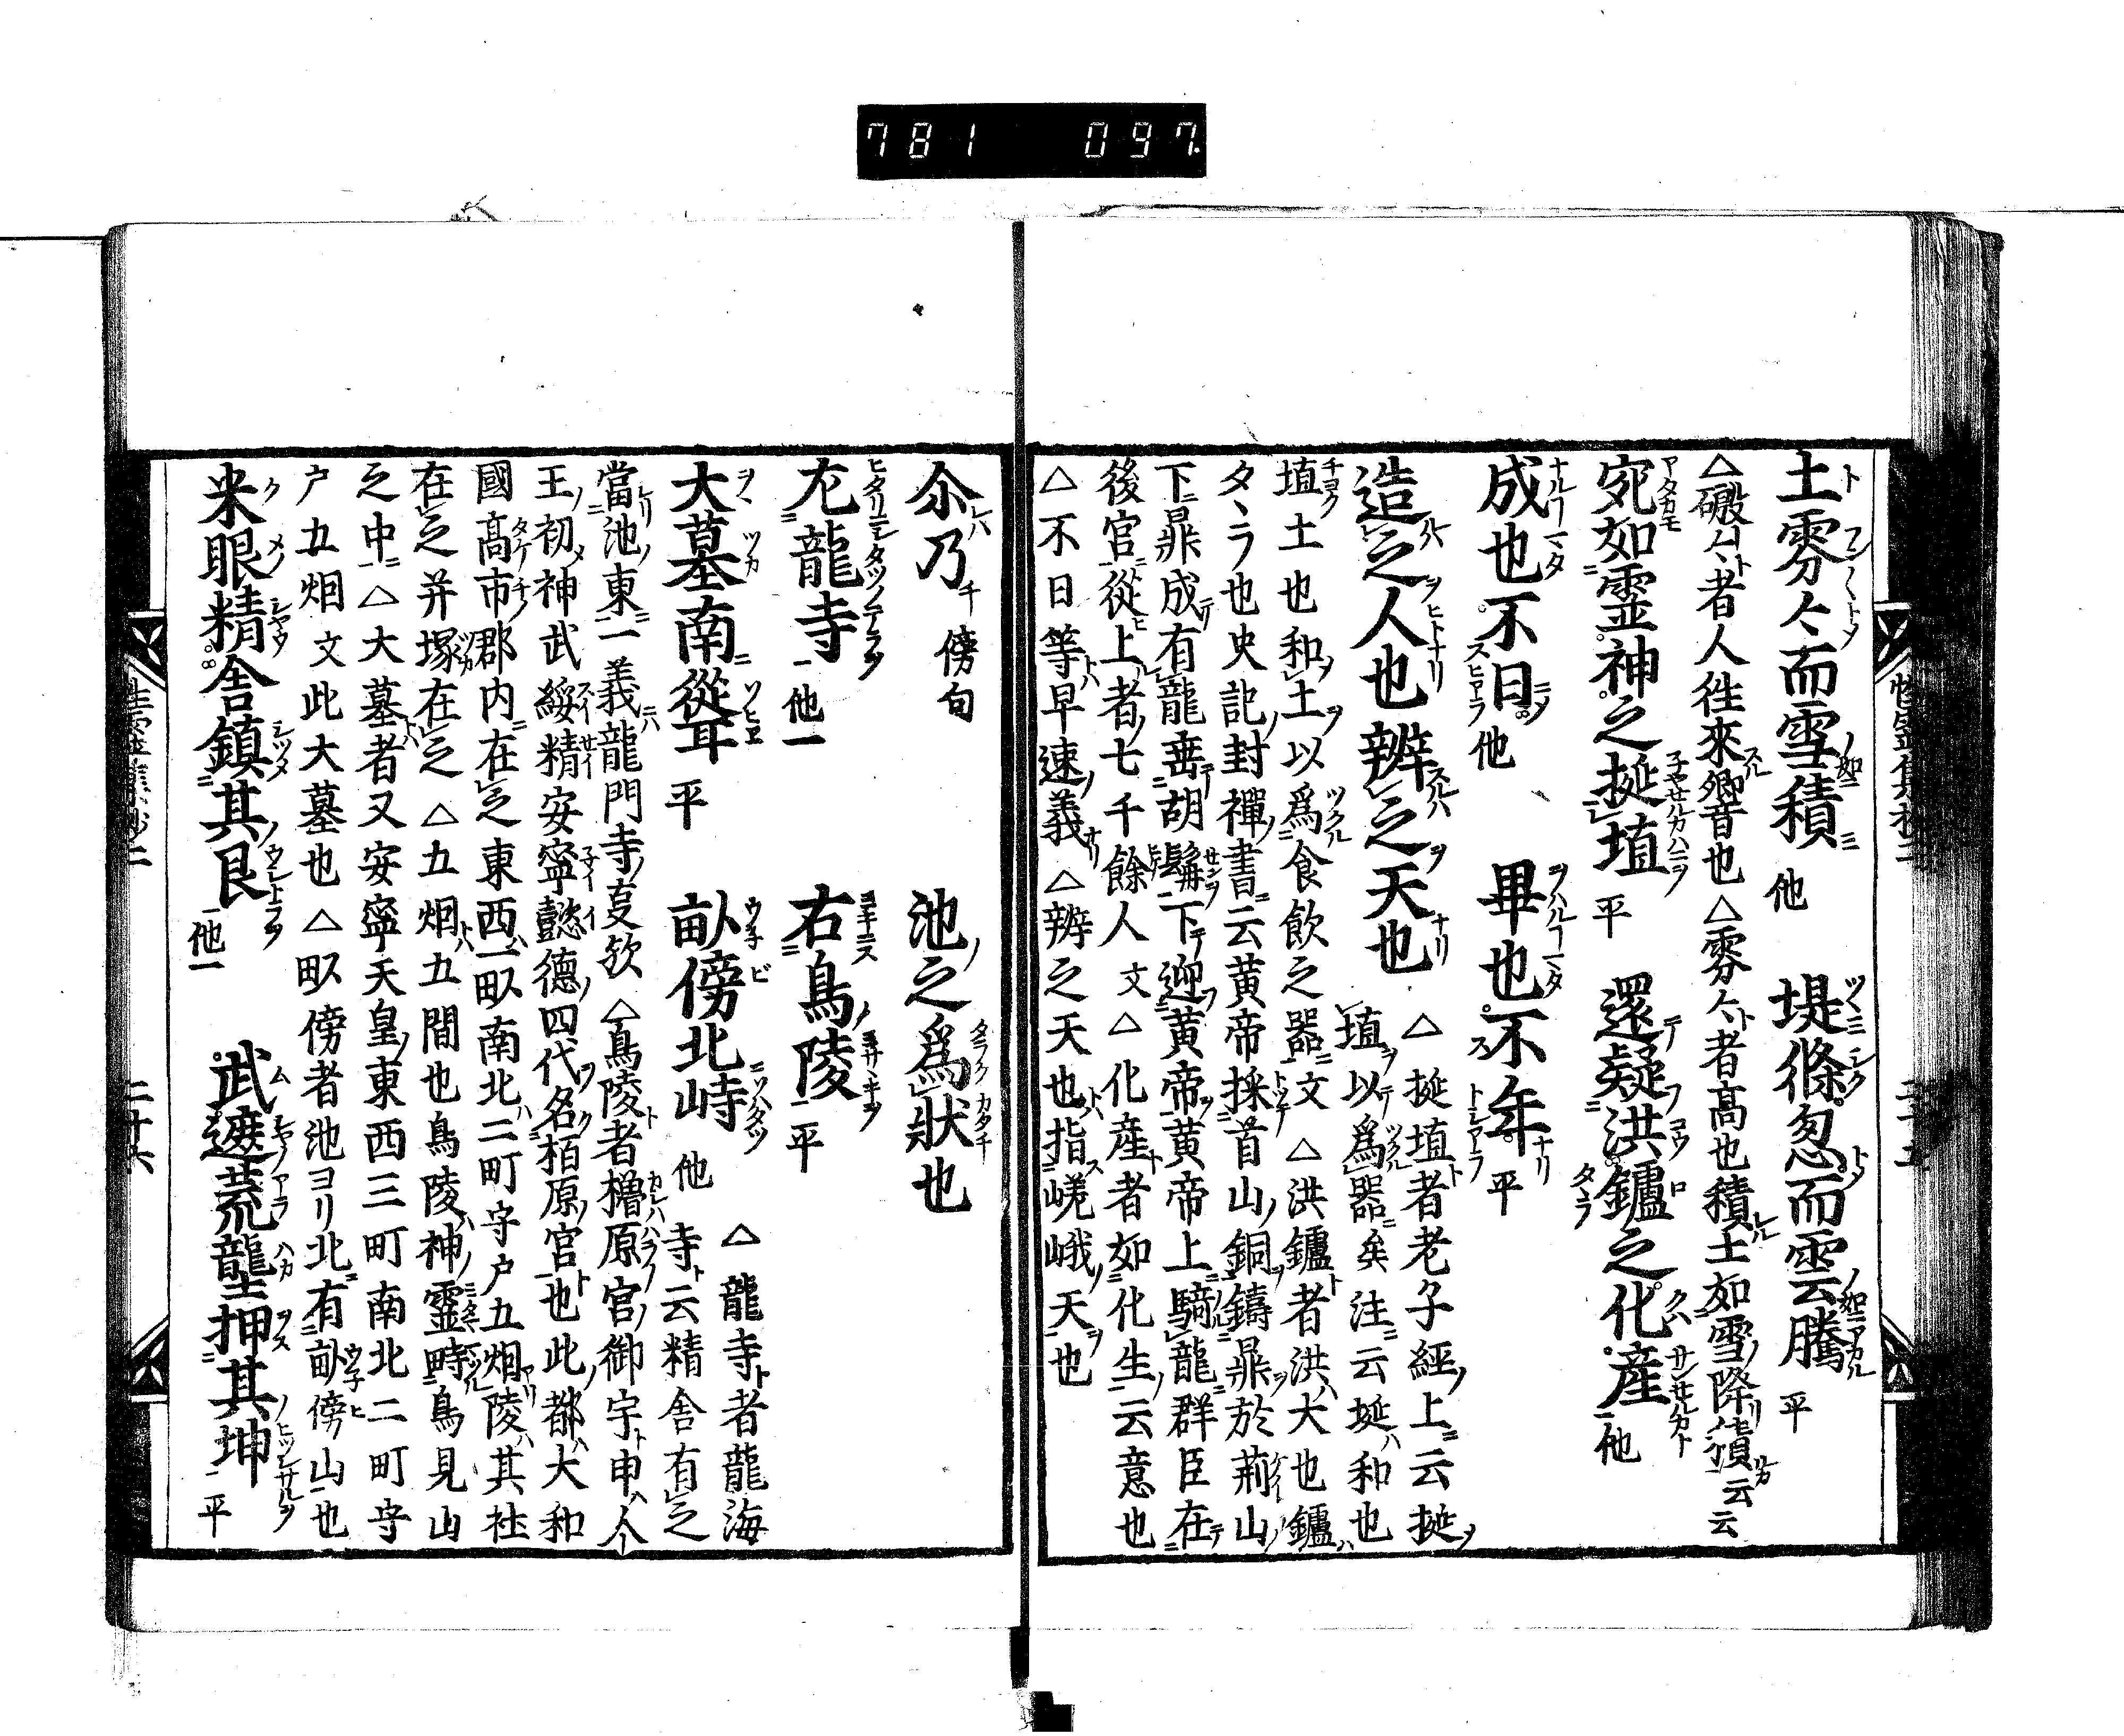 781 097
土雰々而雪積 他 堤倏忽而雲騰 平
△磤々者人往來響音也△雰々者高也積土如雪降積云云
宛如霊神之挻埴 平 還疑洪鑪之化産 他
成也不日 他 畢也不年 平
造之人也辨之天也 △挻埴者老子經上云挻
埴以爲器矣注云挻和也
埴土也和土以爲食飲之器文△洪鑪者洪大也鑪
タヽラ也史記封禪書云黄帝採首山銅鑄鼎於荊山
下鼎成有龍垂胡髯下迎黄帝黄帝上騎龍群臣
後官從上者七千餘人文△化産者如化生云意也
△不日等早速義△辨之天也指嵯峨天也
二十五
尒乃 傍句 池之爲狀也
左龍寺 他 右鳥陵 平
△龍寺者龍海
大墓南聳 平 畝傍北峙 他 寺云精舍有之
當池東一義龍門寺㕝欤△鳥陵者橿原宮御宇申人
王初神武綏精安寧懿德四代名栢原宮也此都大和
國高市郡内在之東西一町南北二町守戸五烟陵其社
在之并塚在之△五烟五間也鳥陵神靈畤鳥見山
之中△大墓者又安寧天皇東西三町南北二町守
戸五烟文此大墓也△畝傍者池ヨリ北有畝傍山也
米眼精舍鎮其艮 他 武遮荒壟押其坤 平
性霊集鈔二 二十六